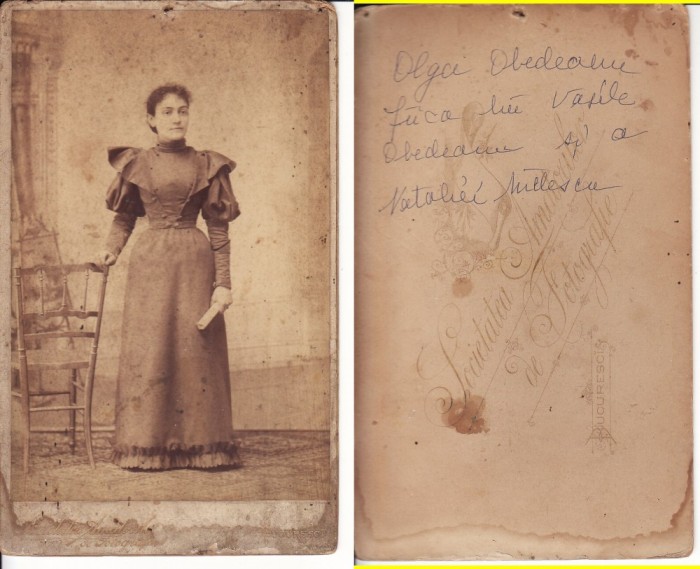 Olga Obedeanu
fiica lui Vasile
Obedeanu și a
Nataliei Milescu
Societatea
de Fotografie
BUCURESCI